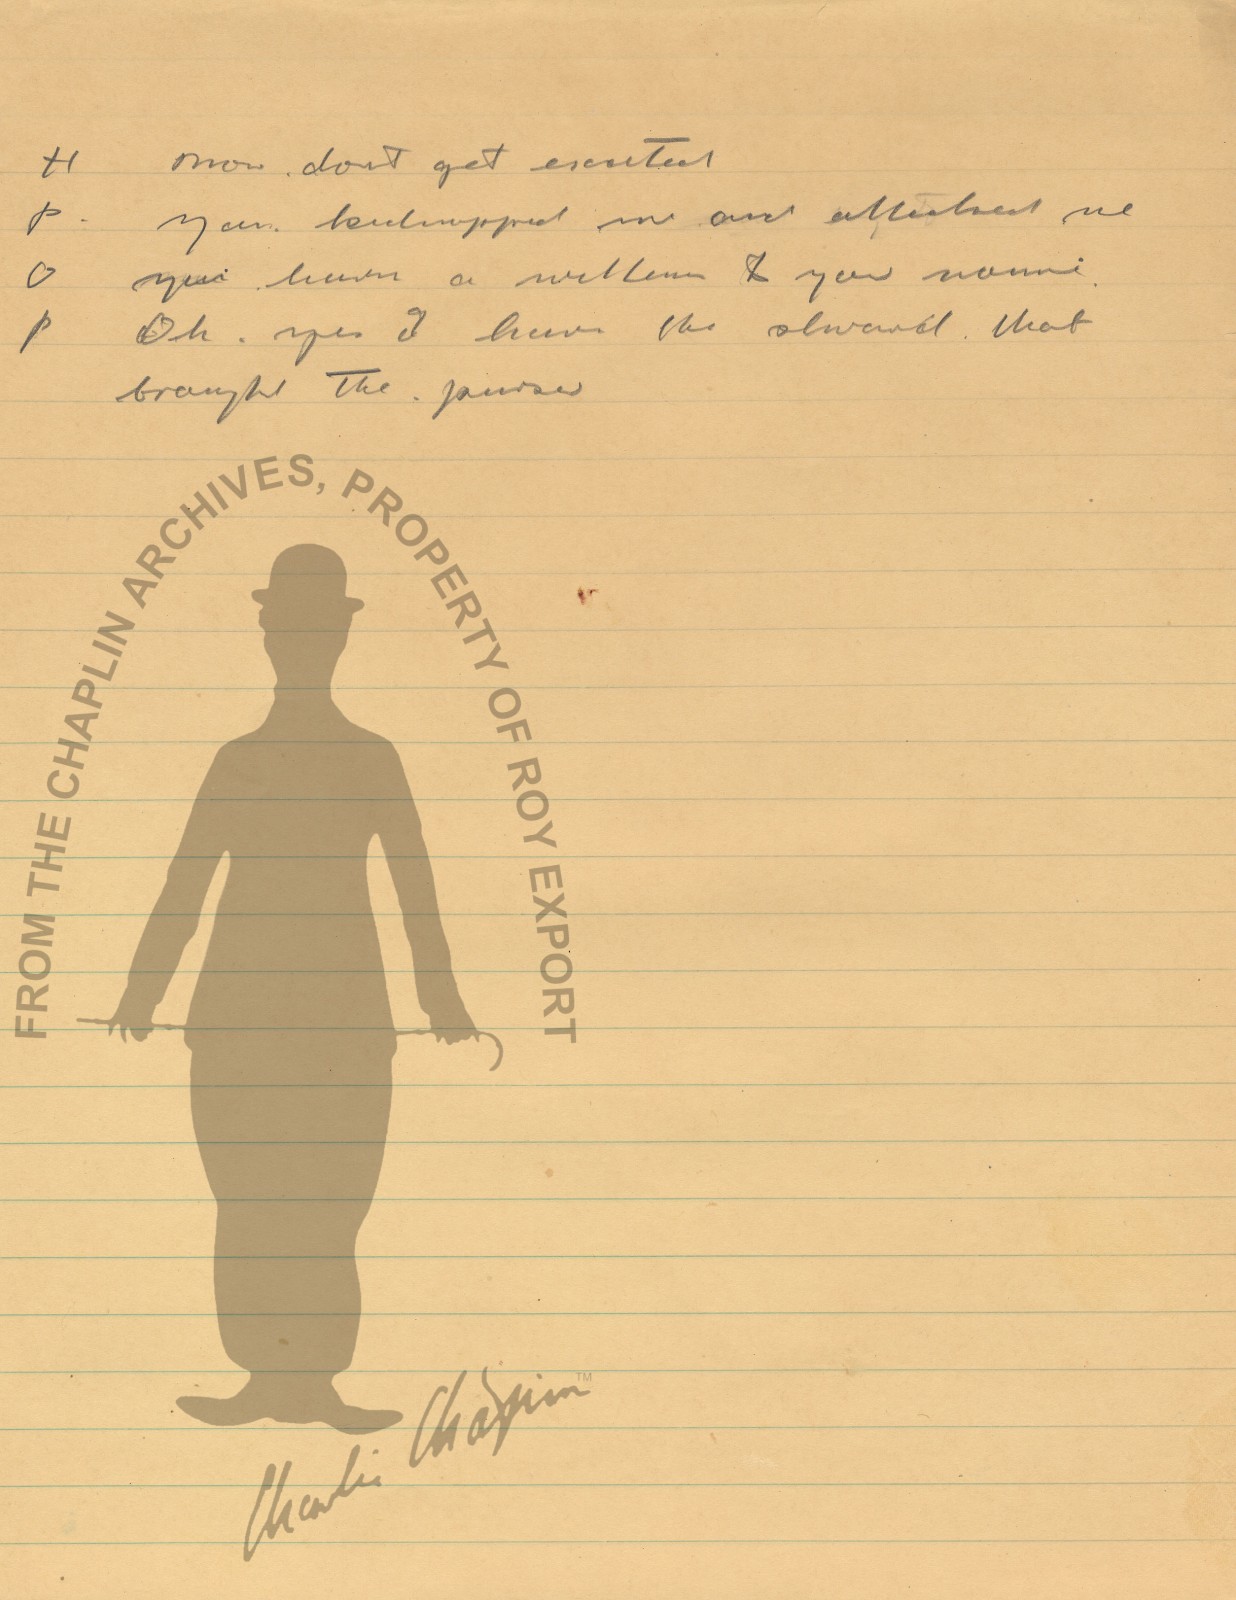 H now. dont get excited
P. You. kidnapped me and attacked me
O you have a wittness & you nound.
P Oh. yes I have the steward. that
brought the. purser
FROM THE CHAPLIN ARCHIVES, PROPERTY OF ROY EXPORT
Charlie Chaplin™